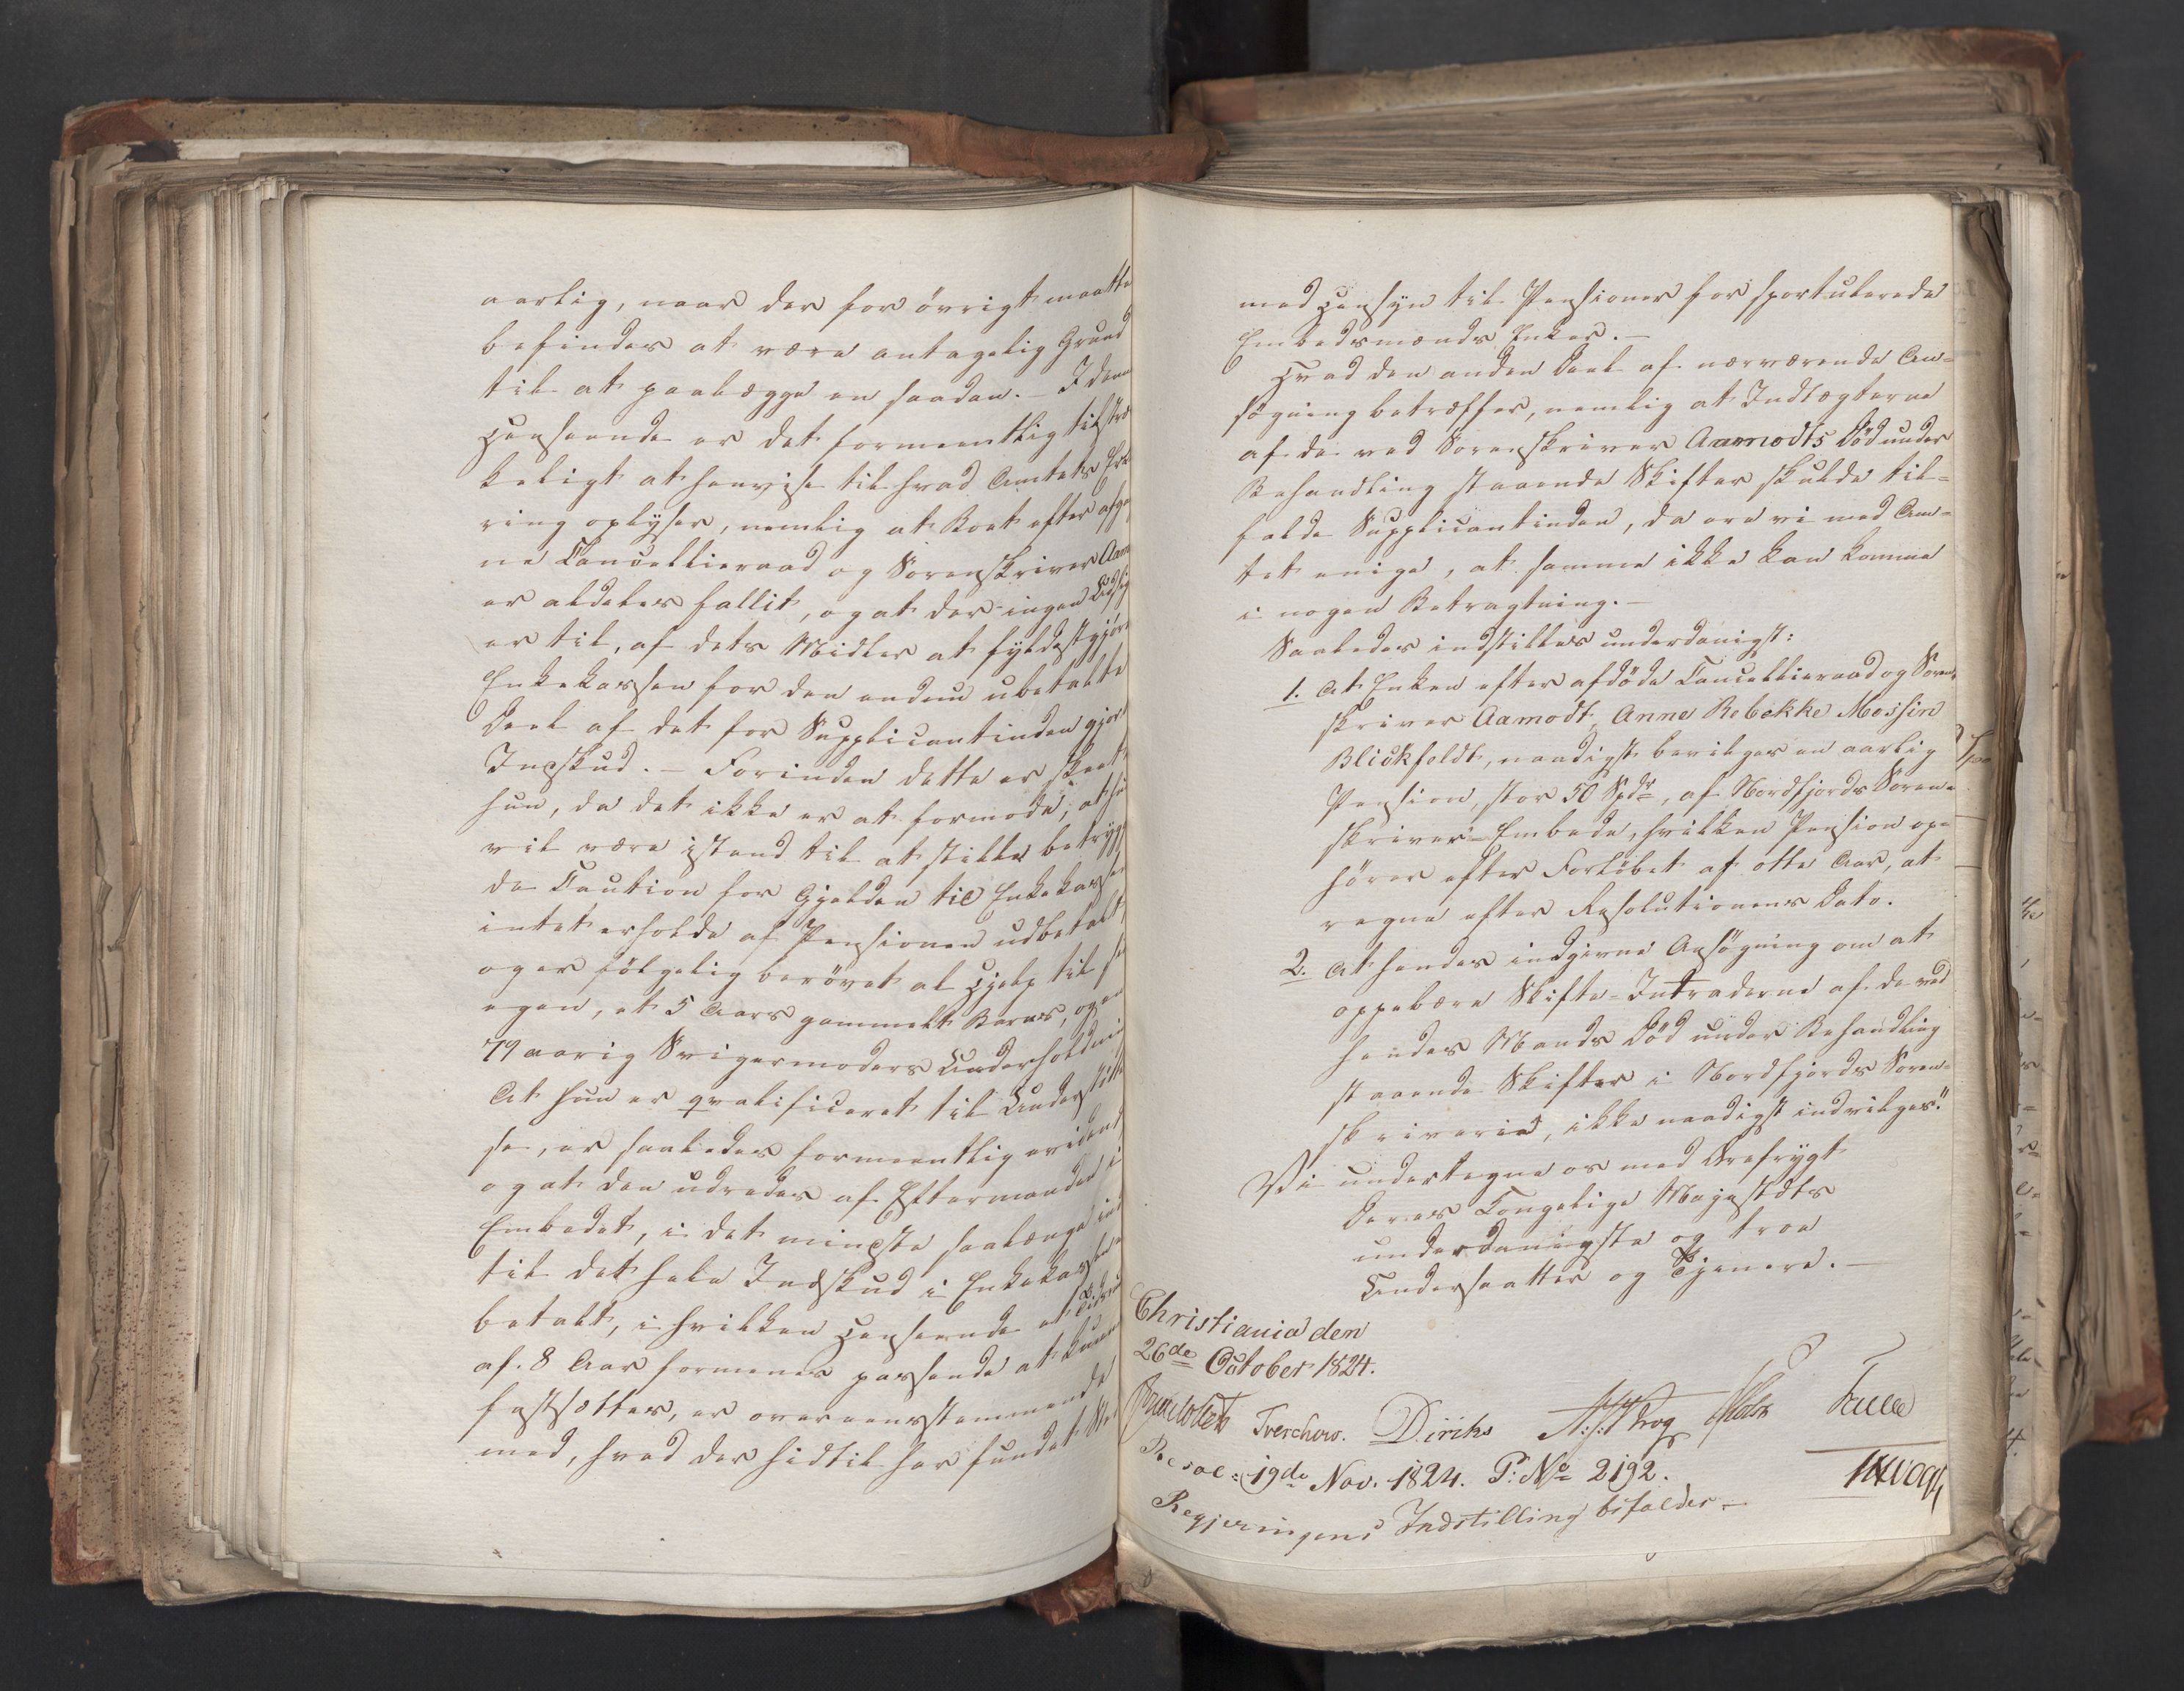 aarlig, naar der for övrigt maatte
befindes at være antagelig Grund
til at paalægge en saadan. – I denne
Henseende er det formeentlig tilstræ
keligt at henvise til hvad Amtets Erk
ring oplyser, nemlig at Boet efter afga
ne Cancellieraad og Sorenskriver Aam
er aldeles fallit, og at der ingen Udsigt
er til, af dets Midler at fyldestgjöre
Enkekassen for den endnu ubetalte
Deel af det for Supplicantinden gjorte
Indskud. – Forinden dette er skeet
hun, da det ikke er at formode, at hu
vil være istand til at stille betrygg
de Caution for Gjelden til Enkekassen
intet erholde af Pensionen udbetalt,
og er fölgelig berövet al Hjelp til sin
egen, et 5 Aars gammelt Barns, og en
79 aarig Svigermoders Underholdning
At hun er qvalificeret til Understöttel
se, er saaledes formeentlig evident,
og at den udredes af Eftermanden i
Embedet, i det mindste saalænge ind
til det hele Indskud i Enkekassen er
betalt, i hvilken Henseende et Tidsrum
af 8 Aar formenes passende at kunne
fastsættes, er overeensstemmende
med, hvad der hidtil har fundet Sted
med Hensyn til Pensioner for sportulerede
Embedsmænds Enker. –
Hvad den anden Deel af nærværende An-
sögning betræffer, nemlig at Indtægterne
af de ved Sorenskriver Aamodts Död under
Behandling staaende Skifter skulde til-
falde Supplicantinden, da ere vi med Am-
tet enige, at samme ikke kan komme
i nogen Betragtning. –
Saaledes indstilles underdanigst:
1. At Enken efter afdöde Cancellieraad og Soren-
skriver Aamodt, Anne Rebekke Mossin
Blickfeldt, naadigst bevilges en aarlig
Pension, stor 50 Spdr, af Nordfjords Soren-
skriver-Embede, hvilken Pension op-
hörer efter Forlöbet af otte Aar, at
regne efter Resolutionens Dato.
2. At hendes indgivne Ansögning om at
oppebære Skifte-Intraderne af de ved
hendes Mands Död under Behandling
staaende Skifter i Nordfjords Soren-
skriverie, ikke naadigst indvilges."
Vi undertegne os med Ærefrygt
Deres Kongelige Majestæts
underdanigste og troe
Undersaatter og Tjenere. –
Christiania den
26de October 1824.
Treschow. Diriks Holst Falbe
Resol: 19de Nov. 1824. P: No 2192.
Regjeringens Indstilling bifaldes. –